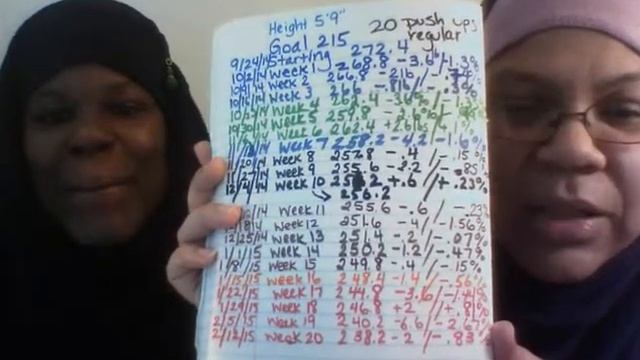 Height 5'9"
20 push ups
regular
Goal 215
9/24/14 Starting 272.4
10/2/14 Week 1 268.8 -3.6 /-1.3%
Week 2 266.8 -2lb
Week 3 266 -.8lb /-.3%
Week 4 262.4 -3.6
Week 5 259.8
Week 6 262.4 +2.6
Week 7 258.2 -4.2 /-1.6%
Week 8 257.8 -.4 /-.15%
Week 9 255.6 -2.2 /-.85
Week 10 +.6 /+.23%
256.2
Week 11 255.6 -.6 /-.23%
Week 12 251.6 -4 /-1.56%
12/25/14 Week 13 251.4 -.2 /-.07%
1/1/15 Week 14 250.2 -1.2 /-.47%
1/8/15 Week 15 249.8 -.4 /-.15%
1/15/15 Week 16 248.4 -1.4 /-.56%
1/22/15 Week 17 244.8 -3.6 /-1.44%
1/29/15 Week 18 246.8 +2 /+.81%
2/5/15 Week 19 240.2 -6.6 /-2.67%
2/12/15 Week 20 238.2 -2 /-.83%